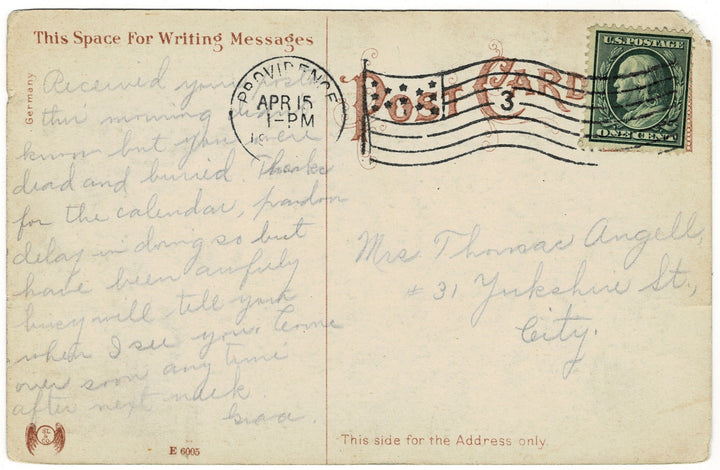 This Space For Writing Messages
Germany
Received your postal
this morning didn't
know but you were
dead and buried. Thanks
for the calendar, pardon
delay in doing so but
have been awfully
busy will tell you
when I see you. Come
over soon any time
after next week
PROVIDENCE
APR 15
1-PM
19
3
POST CARD
U.S. POSTAGE
ONE CENT
Mrs Thomas Angell,
#31 Yorkshire St.,
City.
E 6005
This side for the Address only.